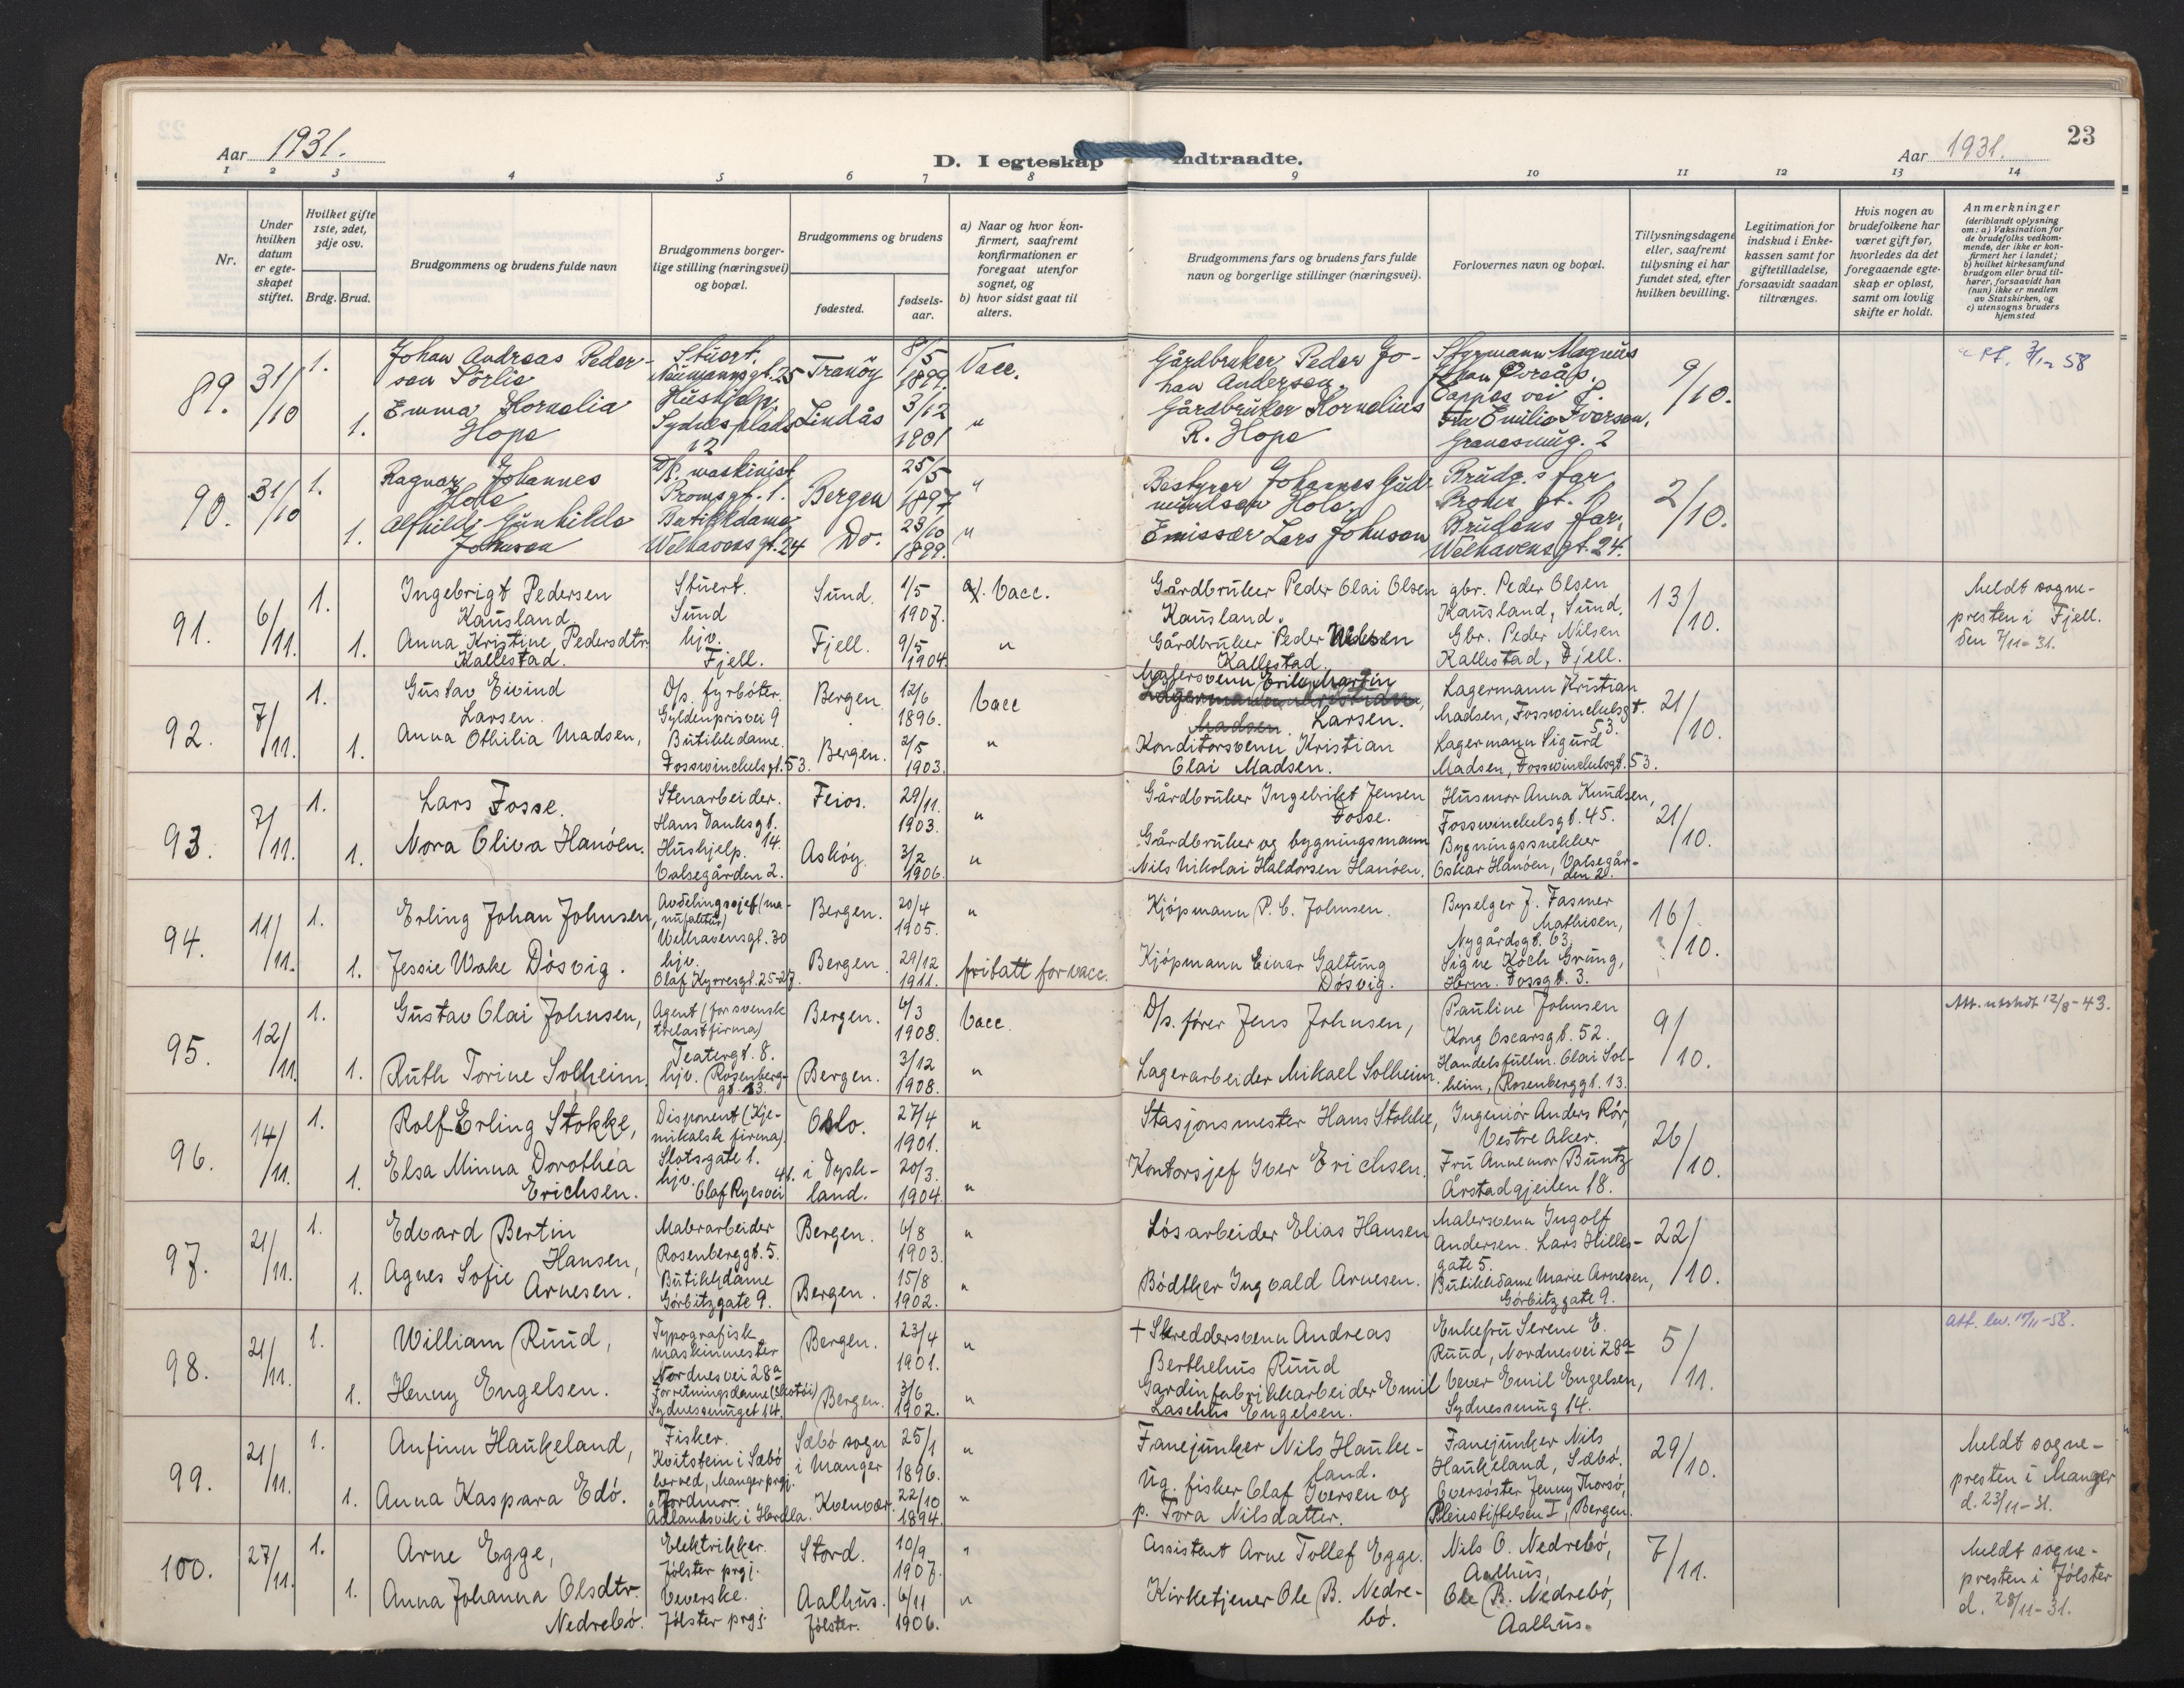 Aar 1931.
D. I egteskap indtraadte.
Aar 1931.
23
1 2 3 4 5 6 7 8 9 10 11 12 13 14
Nr.
Under hvilken datum er egteskapet stiftet.
Hvilket gifte 1ste, 2det, 3dje osv.
Brdg. Brud.
Brudgommens og brudens fulde navn
Brudgommens borgerlige stilling (næringsvei) og bopæl.
Brudgommens og brudens
fødested.
fødselsaar.
a) Naar og hvor konfirmert, saafremt konfirmationen er foregaat utenfor sognet, og
b) hvor sidst gaat til alters.
Brudgommens fars og brudens fars fulde navn og borgerlige stillinger (næringsvei).
Forlovernes navn og bopæl.
Tillysningsdagene eller, saafremt tillysning ei har fundet sted, efter hvilken bevilling.
Legitimation for indskud i Enkekassen samt for giftetilladelse, forsaavidt saadan tiltrænges.
Hvis nogen av brudefolkene har været gift før, hvorledes da det foregaaende egteskap er opløst, samt om lovlig skifte er holdt.
Anmerkninger (deriblandt oplysning om: a) Vaksination for de brudefolks vedkommende, der ikke er konfirmert her i landet; b) hvilket kirkesamfund brudgom eller brud tilhører, forsaavidt han (hun) ikke er medlem av Statskirken, og c) utensogns bruders hjemsted
89. 31/10 1. Johan Andreas Pedersen Sörlie Stuert. Neumannsgt. 25 Tranöy 8/5 1899. Vacc.
Gårdbruker Peder Johan Andersen. Styrmann Magnus 9/10.
1. Emma Kornelia Hope Sydnesplads 12 Lindås 3/12 1901 "
Gårdbruker Kornelius R. Hope Emilie Iversen,
90. 31/10 1. Ragnar Johannes Hole D/s. maskinist Promsgt. 1. Bergen 25/5 1897 "
Bestyrer Johannes Gudmundsen Hole. Brudg.s far 2/10.
1. Alfhild Gunhilda Johnsen Butikkdame Welhavensgt. 24 Do. 1899. "
Emissær Lars Johnsen Brudens far, Welhavensgt. 24.
91. 6/11. 1. Ingebrigt Pedersen Kausland. Stuert. Sund Sund. 1/5 1907. a). Vacc.
Gårdbruker Peder Olai Olsen Kausland. gbr. Peder Olsen Kausland, Sund. 13/10. Meldt sognepresten i Fjell. den 7/11-31.
1. Anna Kristine Pedersdtr. Kallestad. hjv. Fjell. Fjell. 9/5 1904. "
Gårdbruker Peder Nilsen Kallestad. Gbr. Peder Nilsen Kallestad, Fjell.
92. 7/11. 1. Gustav Eivind Larsen. D/s. fyrböter. Gyldenprisvei 9 Bergen. 12/6 1896. Vacc
Malersvenn Erik Martin Larsen. Lagermann Kristian Madsen, Fosswinckelsgt. 53. 21/10.
1. Anna Othilia Madsen, Butikkdame. Fosswinckelsgt. 53. Bergen. 2/5 1903. "
Konditorsvenn Kristian Olai Madsen. Lagermann Sigurd Madsen, Fosswinckelsgt. 53.
93. 7/11. 1. Lars Fosse. Stenarbeider. Hans Tanksgt. 14. Feios. 29/11. 1903. "
Gårdbruker Ingebrikt Jensen Fosse. Husmor Anna Knudsen, Fosswinckelsgt. 45. 21/10.
1. Nora Oliva Hanöen. Hushjelp. Valsegården 2. Asköy. 3/2 1906. "
Gårdbruker og bygningsmann Nils Nikolai Haldorsen Hanöen. Bygningssnekker Oskar Hanöen, Valsegården 2.
94. 11/11. 1. Erling Johan Johnsen, Avdelingssjef (manufaktur) Welhavensgt. 30 Bergen. 20/4 1905. "
Kjöpmann P. C. Johnsen. Byselger J. Fasmer Mathisen, Nygårdsgt. 63. 16/10.
1. Jessie Wake Dösvig. hjv. Olaf Kyrresgt. 25-27. Bergen. 29/12 1911. fritatt for vacc.
Kjöpmann Einar Galtung Dösvig. Signe Koch Grung, Herm. Fossgt. 3.
95. 12/11. 1. Gustav Olai Johnsen, Agent (for svensk trelastfirma) Teatergt. 8. Bergen. 6/3 1908. Vacc.
D/s. förer Jens Johnsen, Pauline Johnsen Kong Oscarsgt. 52. 9/10. Att. utstedt 12/8-43.
1. Ruth Torine Solheim. hjv. Rosenberggt. 13. Bergen. 3/12 1908. "
Lagerarbeider Mikael Solheim. Handelsfullm. Olai Solheim, Rosenberggt. 13.
96. 14/11. 1. Rolf Erling Stokke, Disponent (kjemikalsk firma). Slotsgate 1. Oslo. 27/4 1901. "
Stasjonsmester Hans Stokke, Ingeniör Anders Rör, Vestre Aker. 26/10.
1. Elsa Minna Dorothea Erichsen. hjv. Olaf Ryesvei 41. i Tyskland. 20/3. 1904. "
Kontorsjef Iver Erichsen. Fru Annemor Buntz Årstadgjeilen 18.
97. 21/11. 1. Edvard Bertin Hansen, Malerarbeider Rosenberggt. 5. Bergen. 6/8 1903. "
Lösarbeider Elias Hansen Malersvenn Ingolf Andersen. Lars Hillesgate 5. 22/10.
1. Agnes Sofie Arnesen. Butikkdame Görbitzgate 9. Bergen. 15/8 1902. "
Bödtker Ingvald Arnesen. Butikkdame Marie Arnesen, Görbitzgate 9.
98. 21/11. 1. William Ruud, Typografisk maskinmester Nordnesvei 28a Bergen. 23/4 1901. "
+ Skreddersvenn Andreas Berthelius Ruud Enkefru Serene E. Ruud, Nordnesvei 28a 5/11. att. lev. 17/11-58.
1. Henny Engelsen. Forretningsdame (skotöi) Sydnessmuget 14. Bergen. 3/6 1902. "
Gardinfabrikkarbeider Emil Engelsen. Vever Emil Engelsen, Sydnessmug 14.
99. 21/11. 1. Anfinn Haukeland, Fisker. Kvitstein i Sæbö herred, Manger prgj. Sæbö sogn i Manger 25/1 1896. "
Fanejunker Nils Haukeland. Fanejunker Nils Haukeland, Sæbö. 29/10. Meldt sognepresten i Manger d. 23/11-31.
1. Anna Kaspara Edö. Jordmor. Ådlandsvik i Herdla. Kvenvær. 22/10 1894. "
Ug. fisker Olaf Iversen og p. Tora Nilsdatter. Oversöster Jenny Thorsö, Pleiestiftelsen I, Bergen.
100. 27/11. 1. Arne Egge, Elektrikker. Jölster prgj. Stord. 10/9 1907. "
Assistent Arne Tollef Egge. Nils O. Nedrebö, Aalhus. 7/11. Meldt sognepresten i Jölster d. 28/11-31.
1. Anna Johanna Olsdtr. Nedrebö. Veverske. Jölster prgj Aalhus. Jölster. 6/11 1906. "
Kirketjener Ole B. Nedrebö. Ole B. Nedrebö, Aalhus.